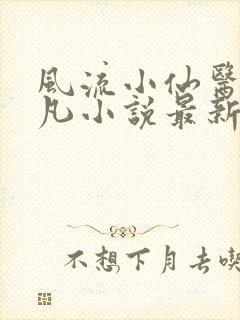 風流小仙醫
凡小說最新
不想下月去喫